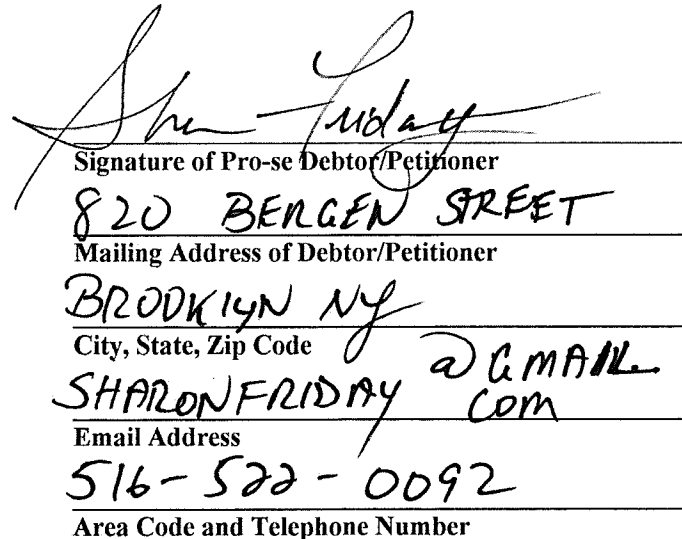 Sha Friday
Signature of Pro-se Debtor/Petitioner
820 BERGEN STREET
Mailing Address of Debtor/Petitioner
BROOKLYN NY
City, State, Zip Code
SHARONFRIDAY @GMAIL.
COM
Email Address
516-522-0092
Area Code and Telephone Number